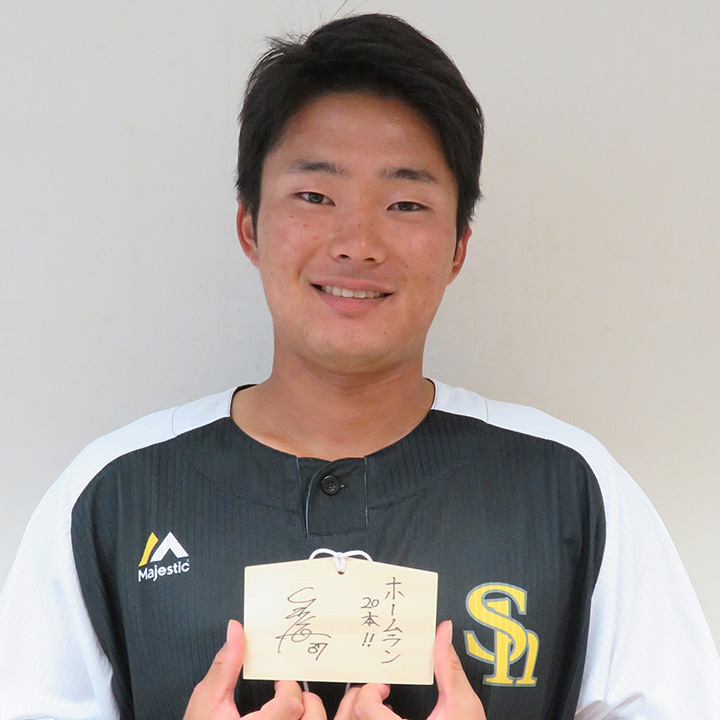 Majestic
Sh
ホームラン
20本!!
37